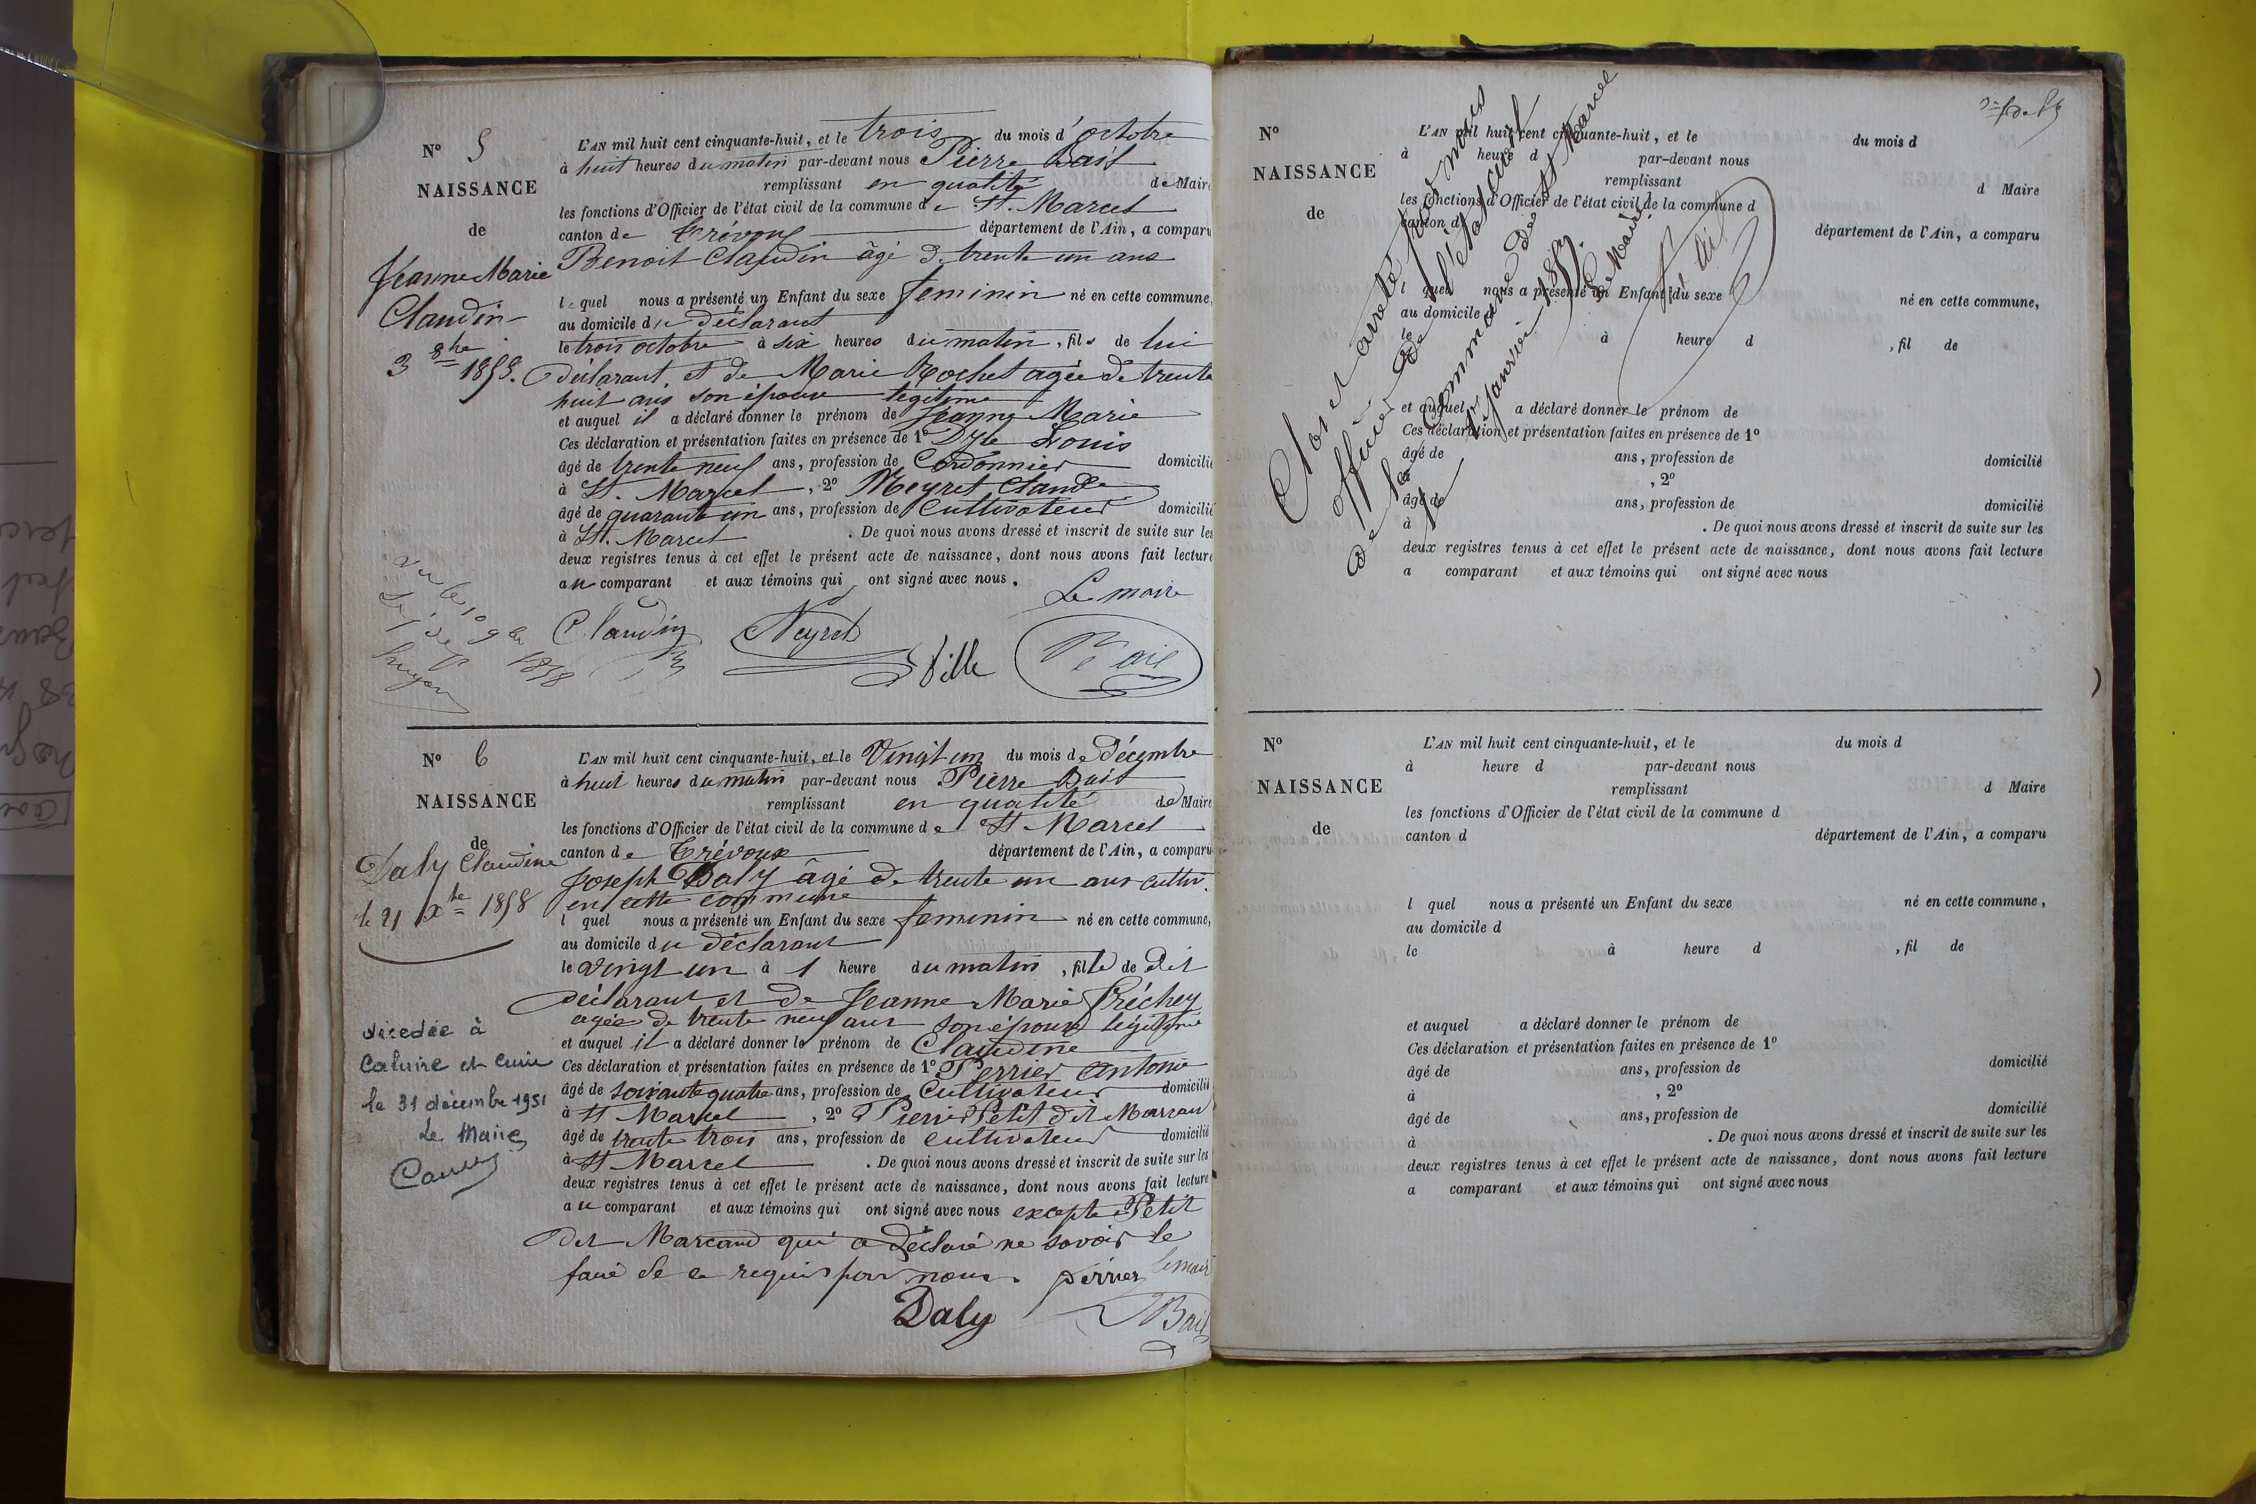 N° 5
NAISSANCE
de
Jeanne Marie
Claudin
3 8bre 1858.
L'AN mil huit cent cinquante-huit, et le trois du mois d'octobre
à huit heures du matin par-devant nous Pierre Bail
remplissant en qualité de Maire
les fonctions d'Officier de l'état civil de la commune de St. Marcel
canton de Trévoux département de l'Ain, a comparu
Benoit Claudin âgé de trente un ans
lequel nous a présenté un Enfant du sexe feminin né en cette commune,
au domicile du déclarant
le trois octobre à six heures du matin, fils de lui
déclarant, et de Marie Rochet agée de trente
huit ans son épouse légitime
et auquel il a déclaré donner le prénom de Jeanne Marie
Ces déclaration et présentation faites en présence de 1° Louis
âgé de trente neuf ans, profession de Cordonnier domicilié
à St. Marcel, 2° Neyret Claude
âgé de quarante un ans, profession de Cultivateur domicilié
à St. Marcel. De quoi nous avons dressé et inscrit de suite sur les
deux registres tenus à cet effet le présent acte de naissance, dont nous avons fait lecture
au comparant et aux témoins qui ont signé avec nous.
Le maire
Claudin Neyret Bail
vu le 10 9bre 1858
N° 6
NAISSANCE
de
Daly Claudine
le 21 Xbre 1858
L'AN mil huit cent cinquante-huit, et le Vingt un du mois de décembre
à huit heures du matin par-devant nous Pierre Bail
remplissant en qualité de Maire
les fonctions d'Officier de l'état civil de la commune de St Marcel
canton de Trévoux département de l'Ain, a comparu
Joseph Daly âgé de trente un ans cultiv.
en cette commune
l quel nous a présenté un Enfant du sexe feminin né en cette commune,
au domicile du déclarant
le vingt un à 1 heure du matin, fille de dit
déclarant et de Jeanne Marie Fréchey
agée de trente neuf ans son épouse légitime
et auquel il a déclaré donner le prénom de Claudine
Ces déclaration et présentation faites en présence de 1° Perrier Antoine
âgé de soixante quatre ans, profession de Cultivateur domicilié
à St Marcel, 2° Pierre Petit dit Marcand
âgé de trente trois ans, profession de cultivateur domicilié
à St Marcel. De quoi nous avons dressé et inscrit de suite sur les
deux registres tenus à cet effet le présent acte de naissance, dont nous avons fait lecture
au comparant et aux témoins qui ont signé avec nous excepte Petit
dit Marcand qui a déclaré ne savoir le
faire de ce requis par nous. perrier le maire
Daly Bail
décedée à
Caluire et Cuire
le 31 décembre 1951
Le Maire
N°
NAISSANCE
de
L'AN mil huit cent cinquante-huit, et le du mois d
à heure d par-devant nous
remplissant d Maire
les fonctions d'Officier de l'état civil de la commune d
canton d département de l'Ain, a comparu
l quel nous a présenté un Enfant du sexe né en cette commune,
au domicile d
le à heure d , fil de
et auquel a déclaré donner le prénom de
Ces déclaration et présentation faites en présence de 1°
âgé de ans, profession de domicilié
à , 2°
âgé de ans, profession de domicilié
à . De quoi nous avons dressé et inscrit de suite sur les
deux registres tenus à cet effet le présent acte de naissance, dont nous avons fait lecture
a comparant et aux témoins qui ont signé avec nous
Clos et arreté par nous
officier de l'état civil
de la commune de St Marcel
le 1er janvier 1859.
Le Maire
Bail
N°
NAISSANCE
de
L'AN mil huit cent cinquante-huit, et le du mois d
à heure d par-devant nous
remplissant d Maire
les fonctions d'Officier de l'état civil de la commune d
canton d département de l'Ain, a comparu
l quel nous a présenté un Enfant du sexe né en cette commune,
au domicile d
le à heure d , fil de
et auquel a déclaré donner le prénom de
Ces déclaration et présentation faites en présence de 1°
âgé de ans, profession de domicilié
à , 2°
âgé de ans, profession de domicilié
à . De quoi nous avons dressé et inscrit de suite sur les
deux registres tenus à cet effet le présent acte de naissance, dont nous avons fait lecture
a comparant et aux témoins qui ont signé avec nous